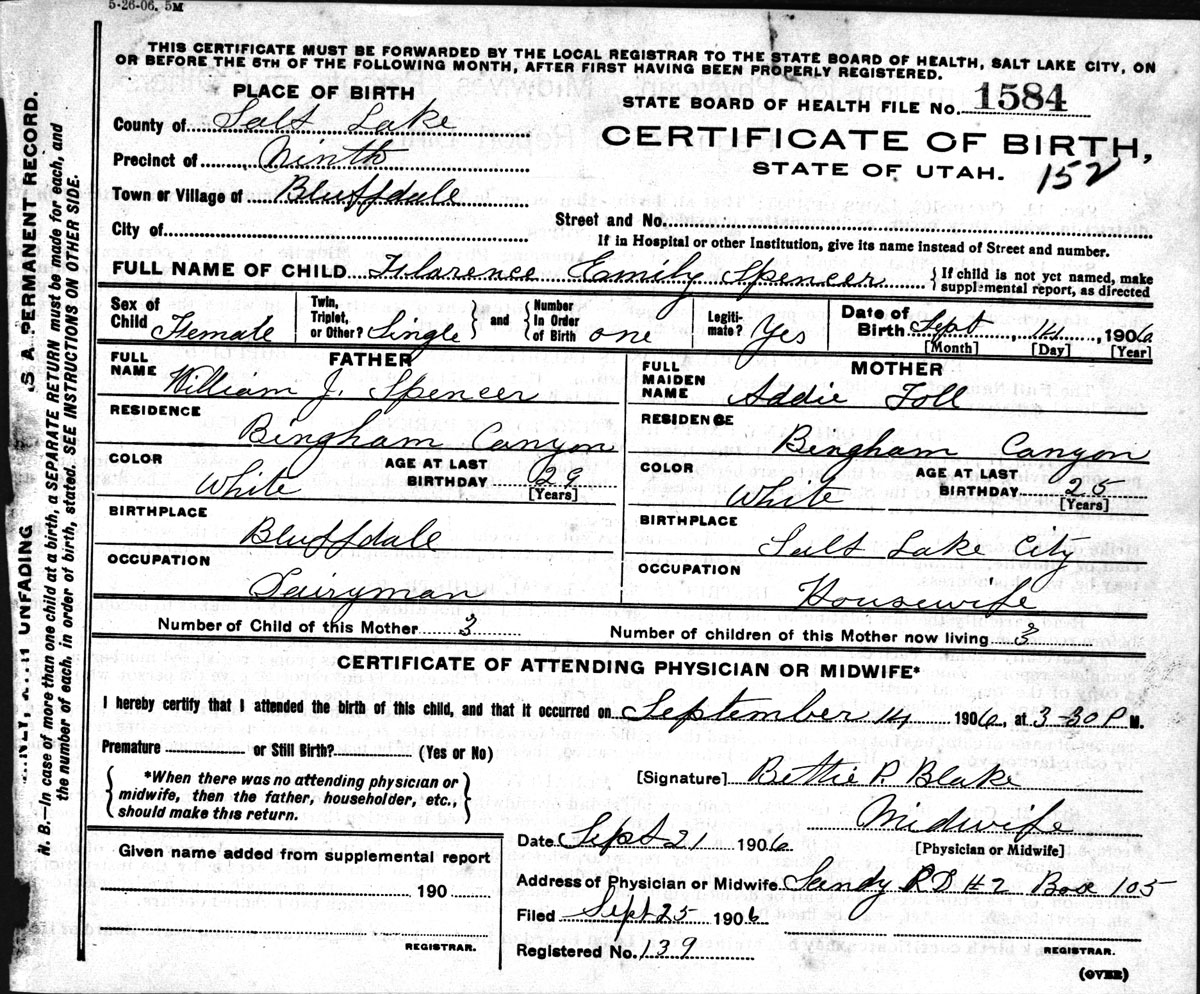 5-26-06. 5M
THIS CERTIFICATE MUST BE FORWARDED BY THE LOCAL REGISTRAR TO THE STATE BOARD OF HEALTH, SALT LAKE CITY, ON
OR BEFORE THE 5TH OF THE FOLLOWING MONTH, AFTER FIRST HAVING BEEN PROPERLY REGISTERED.
PLACE OF BIRTH
STATE BOARD OF HEALTH FILE No. 1584
County of Salt Lake
CERTIFICATE OF BIRTH,
Precinct of Ninth
STATE OF UTAH.
152
Town or Village of Bluffdale
Street and No.
City of
If in Hospital or other Institution, give its name instead of Street and number.
FULL NAME OF CHILD Florence Emily Spencer { If child is not yet named, make
supplemental report, as directed
Sex of Child Female
Twin, Triplet, or Other? Single } and { Number In Order of Birth one
Legitimate? Yes
Date of Birth Sept 14, 1906
[Month] [Day] [Year]
FATHER
FULL NAME William J. Spencer
RESIDENCE
Bingham Canyon
COLOR White
AGE AT LAST BIRTHDAY 29
[Years]
BIRTHPLACE
Bluffdale
OCCUPATION
Dairyman
MOTHER
FULL MAIDEN NAME Addie Toll
RESIDENCE
Bingham Canyon
COLOR White
AGE AT LAST BIRTHDAY 25
[Years]
BIRTHPLACE
Salt Lake City
OCCUPATION
Housewife
Number of Child of this Mother 3
Number of children of this Mother now living 3
CERTIFICATE OF ATTENDING PHYSICIAN OR MIDWIFE*
I hereby certify that I attended the birth of this child, and that it occurred on September 14 1906, at 3-30 P M.
Premature or Still Birth? (Yes or No)
{ *When there was no attending physician or
midwife, then the father, householder, etc.,
should make this return. }
[Signature] Bettie P. Blake
Midwife
Date Sept 21 1906
[Physician or Midwife]
Given name added from supplemental report
190
REGISTRAR.
Address of Physician or Midwife Sandy RD #2 Box 105
Filed Sept 25 1906
Registered No. 139
REGISTRAR.
(OVER)
UNFADING
S A PERMANENT RECORD.
N. B.—In case of more than one child at a birth, a SEPARATE RETURN must be made for each, and
the number of each, in order of birth, stated. SEE INSTRUCTIONS ON OTHER SIDE.